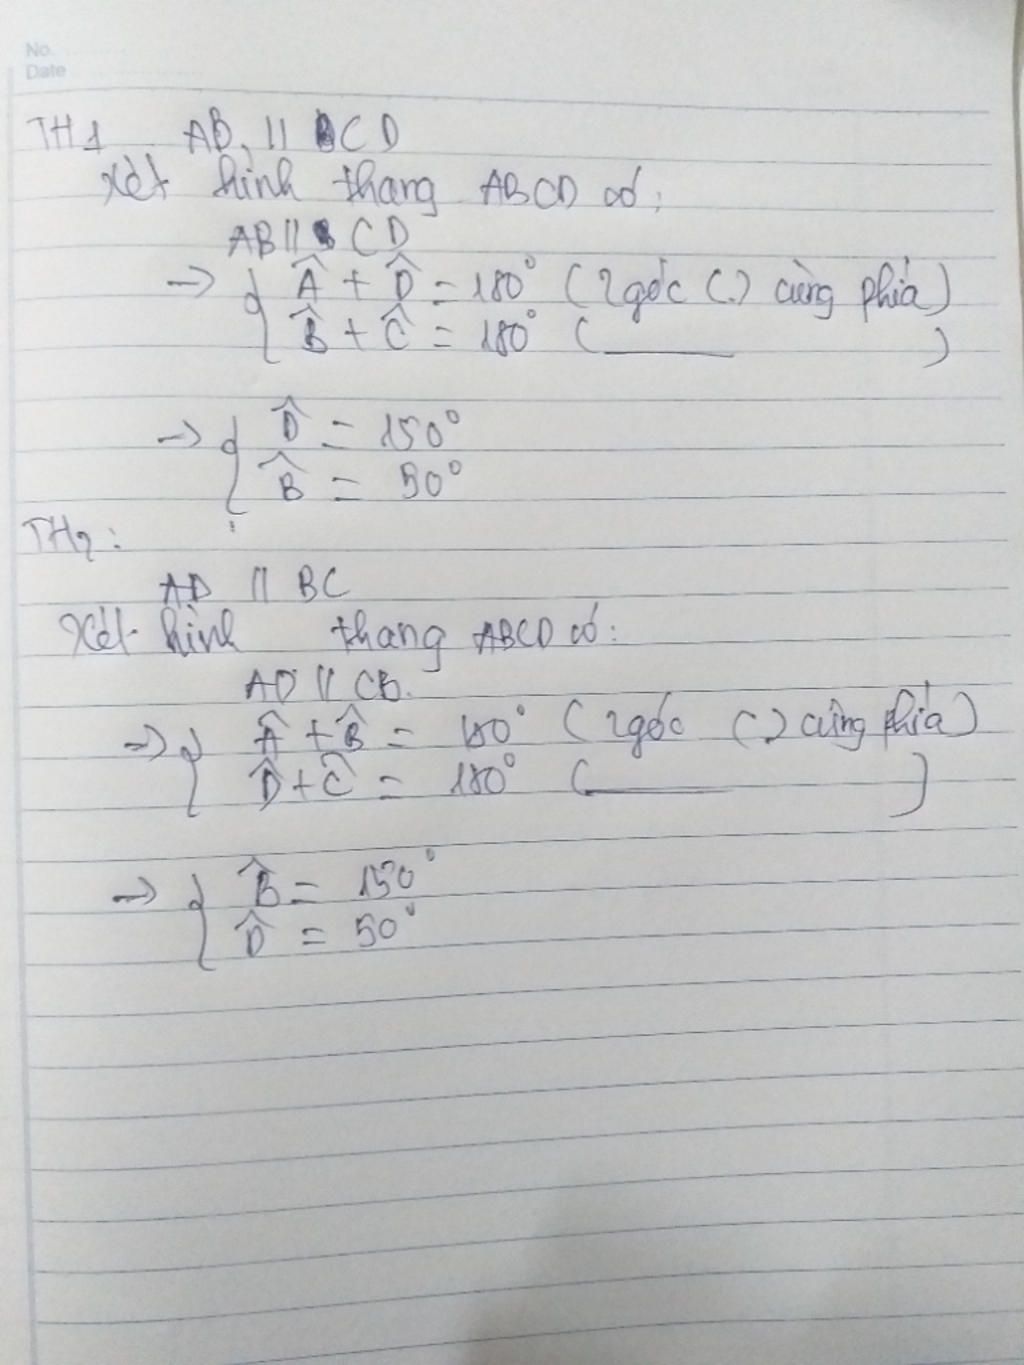 No.
Date
TH1 AB // CD
Xét hình thang ABCD có:
AB // CD
→ { Â + D̂ = 180° (2 góc (.) cùng phía)
B̂ + Ĉ = 180° ( ——— )
→ { D̂ = 150°
B̂ = 50°
TH2:
AD // BC
Xét hình thang ABCD có:
AD // CB.
→ { Â + B̂ = 180° (2 góc (.) cùng phía)
D̂ + Ĉ = 180° ( ——— )
→ { B̂ = 150°
D̂ = 50°